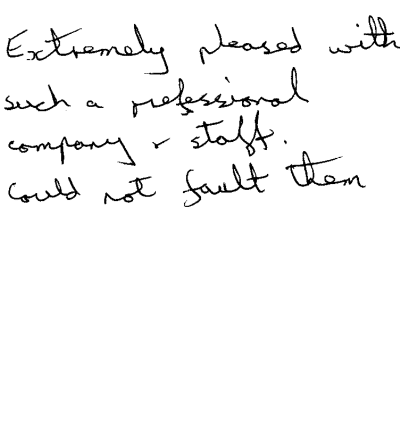 Extremely pleased with
such a professional
company & staff.
Could not fault them